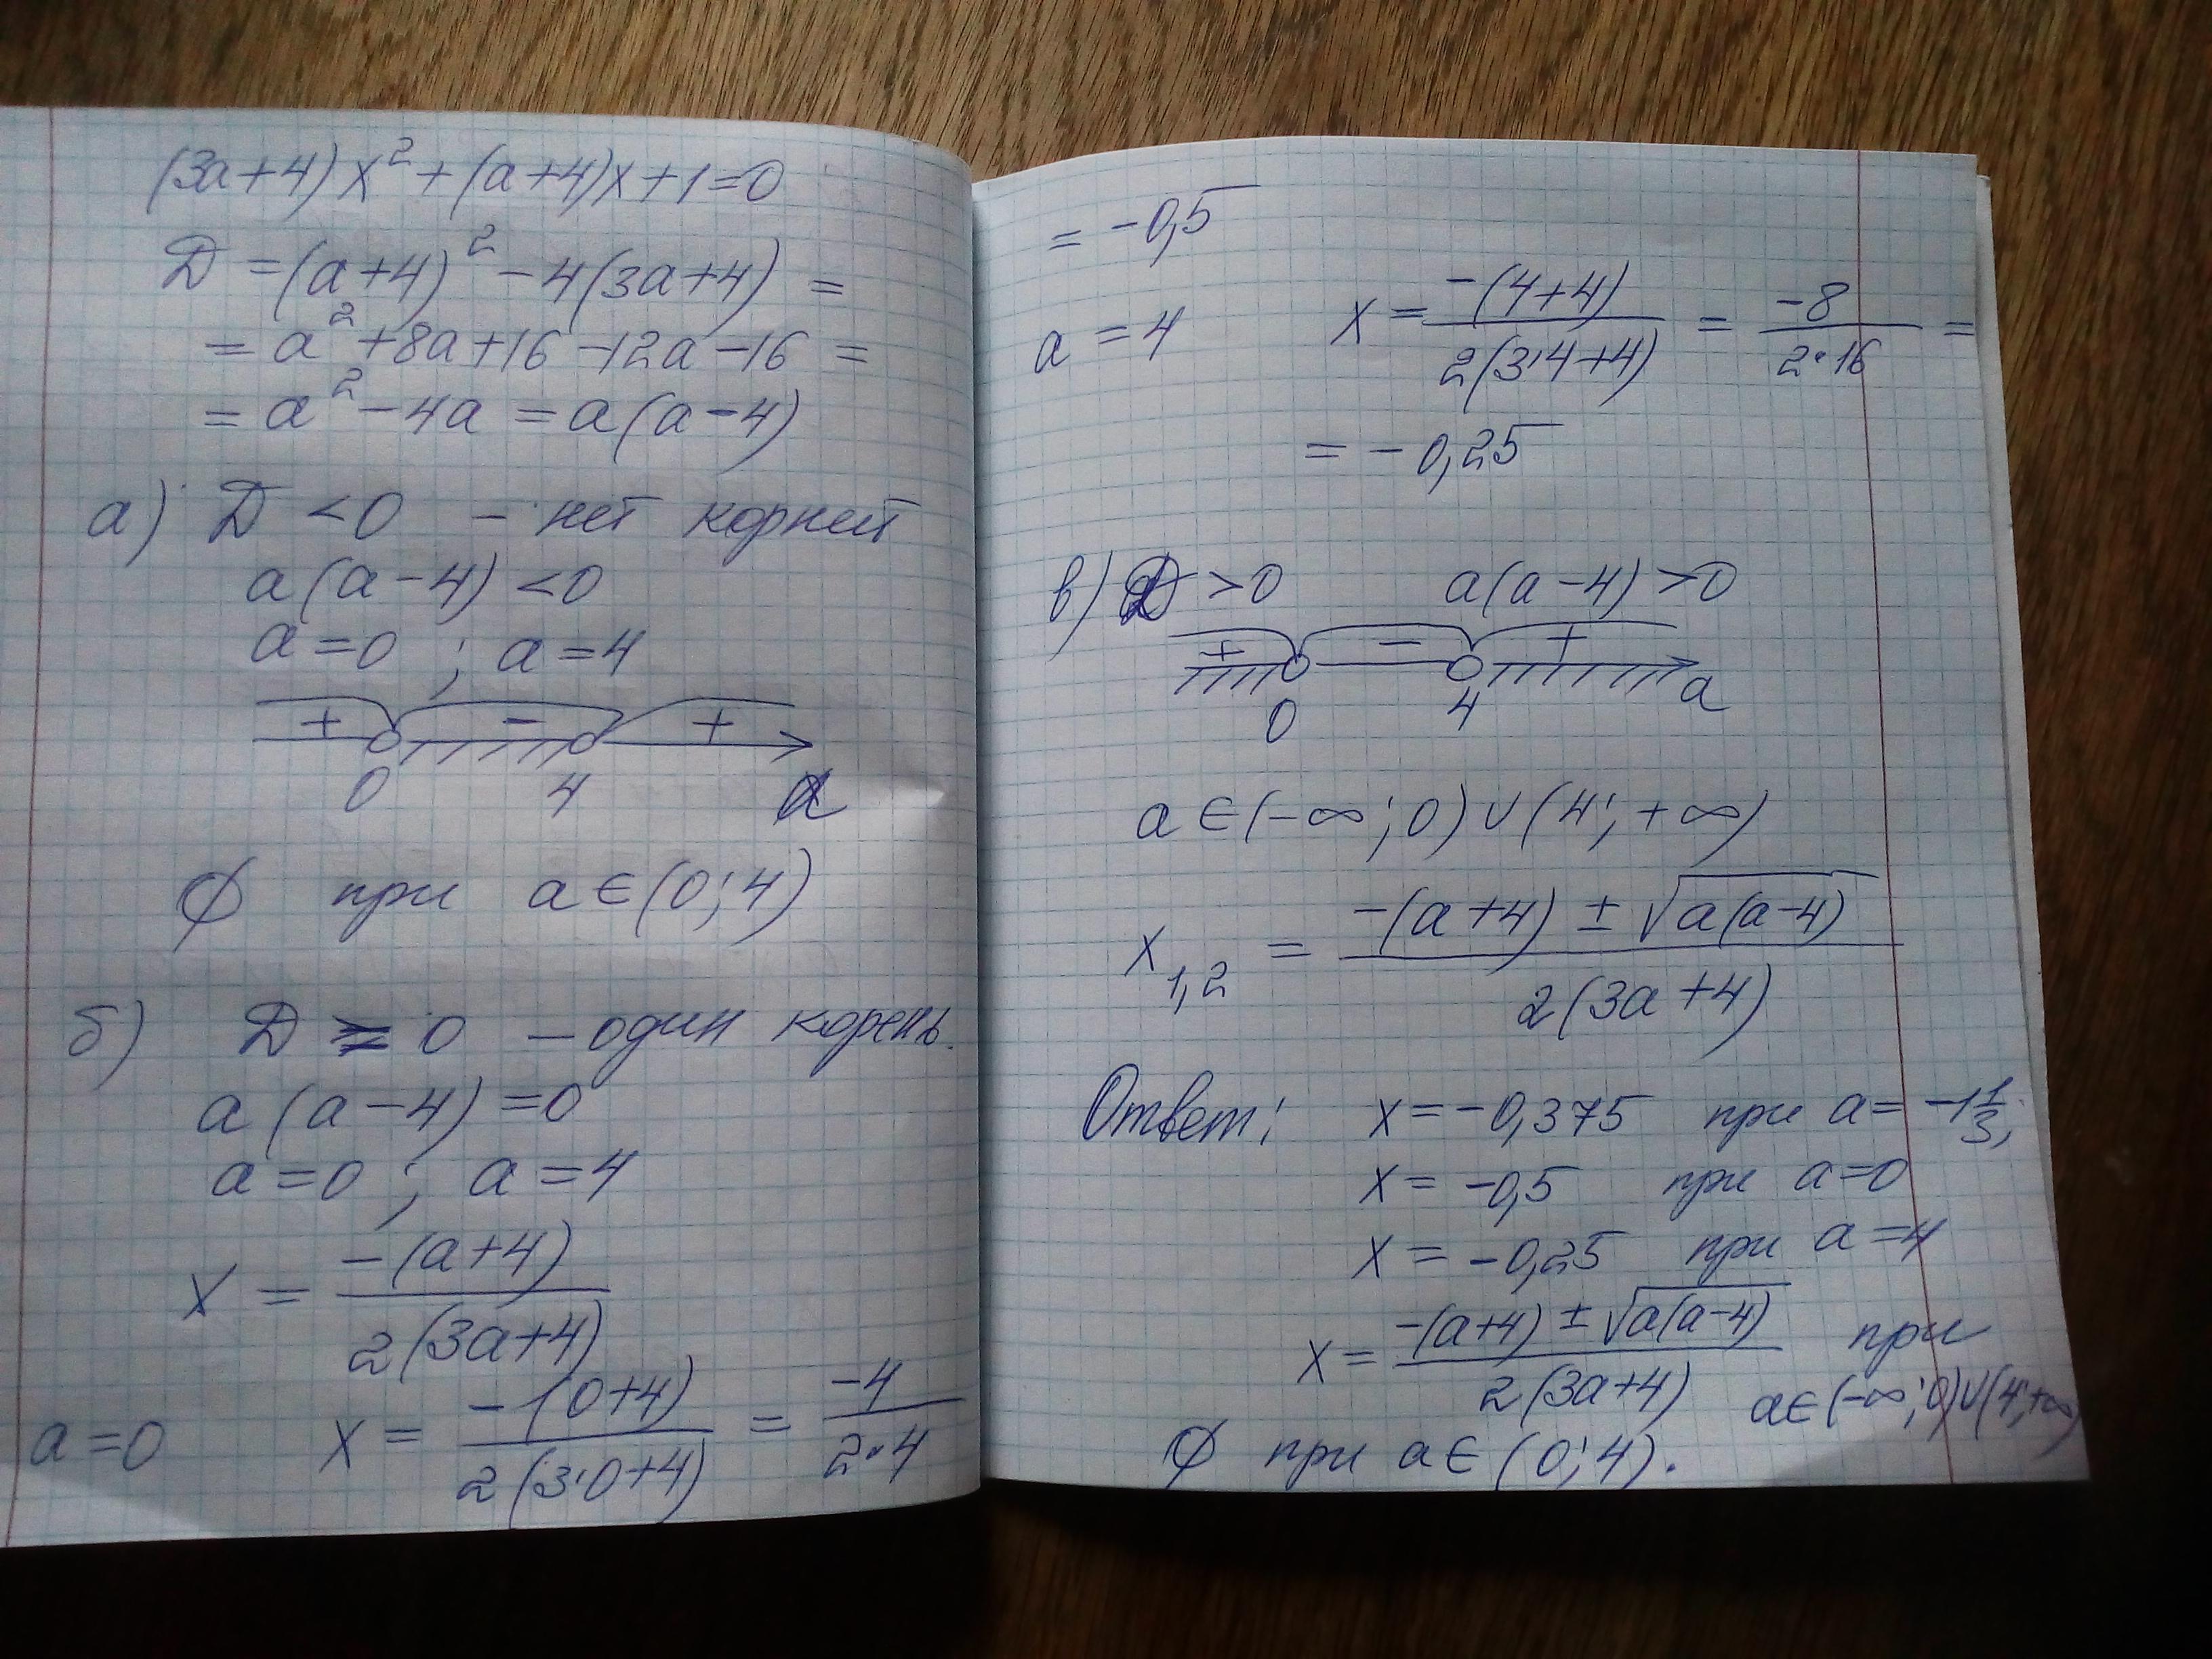 (3a+4)x²+(a+4)x+1=0
D=(a+4)²-4(3a+4)=
=a²+8a+16-12a-16=
=a²-4a=a(a-4)
а) D<0 - нет корней
a(a-4)<0
a=0 ; a=4
+ - +
0 4 a
∅ при a∈(0;4)
б) D = 0 - один корень.
a(a-4)=0
a=0 ; a=4
x = -(a+4) / 2(3a+4)
a=0 x = -1(0+4) / 2(3·0+4) = -4 / 2·4
= -0,5
a=4 x = -(4+4) / 2(3·4+4) = -8 / 2·16 =
= -0,25
в) D>0 a(a-4)>0
+ - +
0 4 a
a∈(-∞;0)∪(4;+∞)
x₁,₂ = -(a+4) ± √a(a-4) / 2(3a+4)
Ответ: x=-0,375 при a=-1 1/3;
x= -0,5 при a=0
x= -0,25 при a=4
x= -(a+4) ± √a(a-4) / 2(3a+4) при
a∈(-∞;0)∪(4;+∞)
∅ при a∈(0;4).